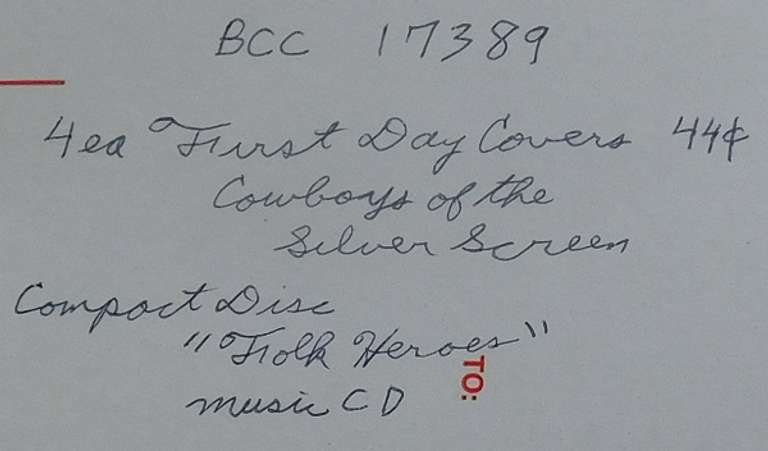 BCC 17389
4ea First Day Covers 44¢
Cowboys of the
Silver Screen
Compact Disc
"Folk Heroes"
TO:
music CD